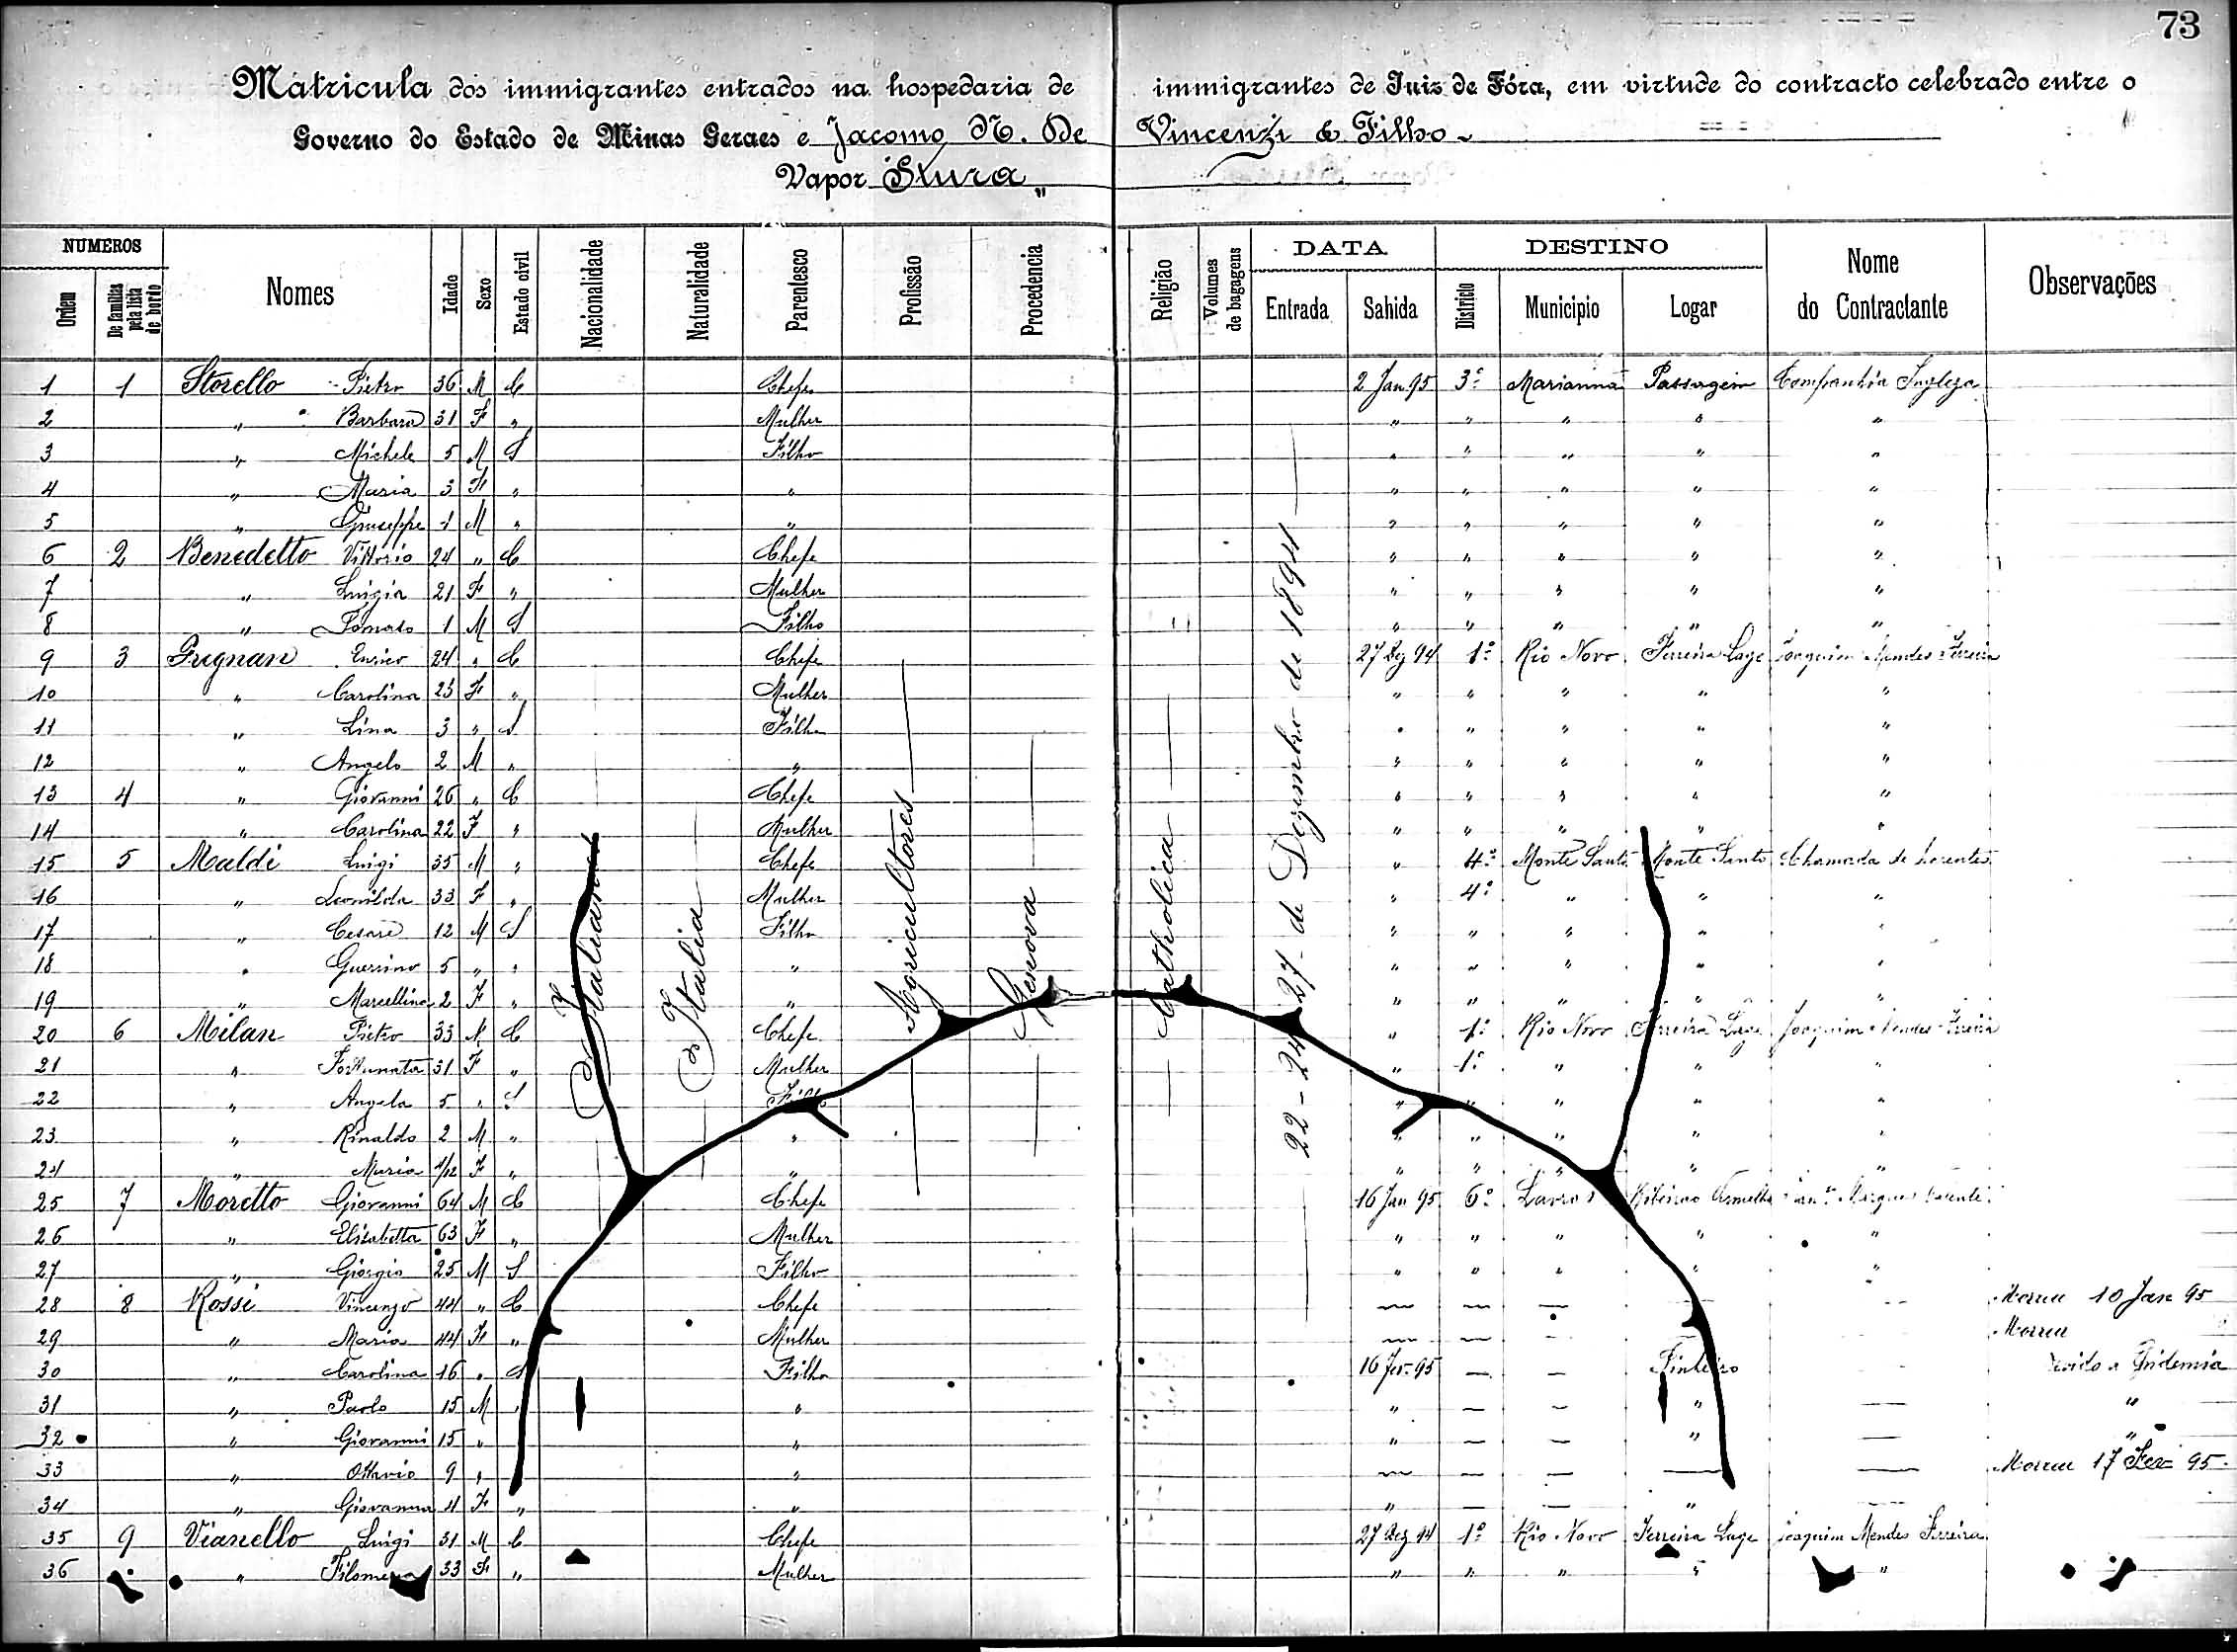 73
Matricula dos immigrantes entrados na hospedaria de immigrantes de Juiz de Fóra, em virtude do contracto celebrado entre o
Governo do Estado de Minas Geraes e Jacomo N. De Vincenzi & Filho
Vapor Stura "
NUMEROS DATA DESTINO
Ordem De familias pela lista de bordo Nomes Idade Sexo Estado civil Nacionalidade Naturalidade Parentesco Profissão Procedencia Religião Volumes de bagagens Entrada Sahida Districto Municipio Logar Nome do Contractante Observações
Italiana Italia Agricultores Genova Catholica 22-24-27 de Dezembro de 1894
1 1 Storello Pietro 36 M C Chefe 2 Jan 95 3º Marianna Passagem Companhia Ingleza
2 " Barbara 31 F " Mulher " " " " "
3 " Michele 5 M S Filho " " " " "
4 " Maria 3 F " " " " " " "
5 " Giuseppe 1 M " " " " " " "
6 2 Benedetto Vittorio 24 " C Chefe " " " " "
7 " Luigia 21 F " Mulher " " " " "
8 " 1 M S Filho " " " " "
9 3 Enrico 24 " C Chefe 27 Dez 94 1º Rio Novo Ferreira Lage Joaquim Mendes Ferreira
10 " Carolina 23 F " Mulher " " " " "
11 " Lina 3 " S Filha " " " " "
12 " Angelo 2 M " " " " " " "
13 4 " Giovanni 26 " C Chefe " " " " "
14 " Carolina 22 F " Mulher " " " " "
15 5 Maldi Luigi 35 M " Chefe " 4º Monte Santo Monte Santo Chamada de
16 " Leonilda 33 F " Mulher " 4º " " "
17 " Cesare 12 M S Filho " " " " "
18 " Guerrino 5 " " " " " " " "
19 " Marcellina 2 F " " " " " " "
20 6 Milan Pietro 33 M C Chefe " 1º Rio Novo Ferreira Lage Joaquim Mendes Ferreira
21 " Fortunata 31 F " Mulher " 1º " " "
22 " Angela 5 " S Filha " " " " "
23 " Rinaldo 2 M " " " " " " "
24 " Maria 1/12 F " " " " " " "
25 7 Moretto Giovanni 64 M C Chefe 16 Jan 95 6º Lavras Ribeirão Vermelho Marques
26 " Elisabetta 63 F " Mulher " " " " "
27 " Giorgio 25 M S Filho " " " " "
28 8 Rossi Vincenzo 44 " C Chefe — — — — Morreu 10 Jan 95
29 " Maria 44 F " Mulher — — — — Morreu
30 " Carolina 16 " S Filha 16 Fev. 95 — — Pinheiro — Epidemia
31 " Paolo 15 M " " " — — " — "
32 " Giovanni 15 " " " — — " — "
33 " Ottavio 9 " " — — — — — Morreu 17 Fev 95
34 " Giovanna 11 F " " " — — " —
35 9 Vianello Luigi 31 M C Chefe 27 Dez 94 1º Rio Novo Ferreira Lage Joaquim Mendes Ferreira
36 " Filomena 33 F " Mulher " " " " "